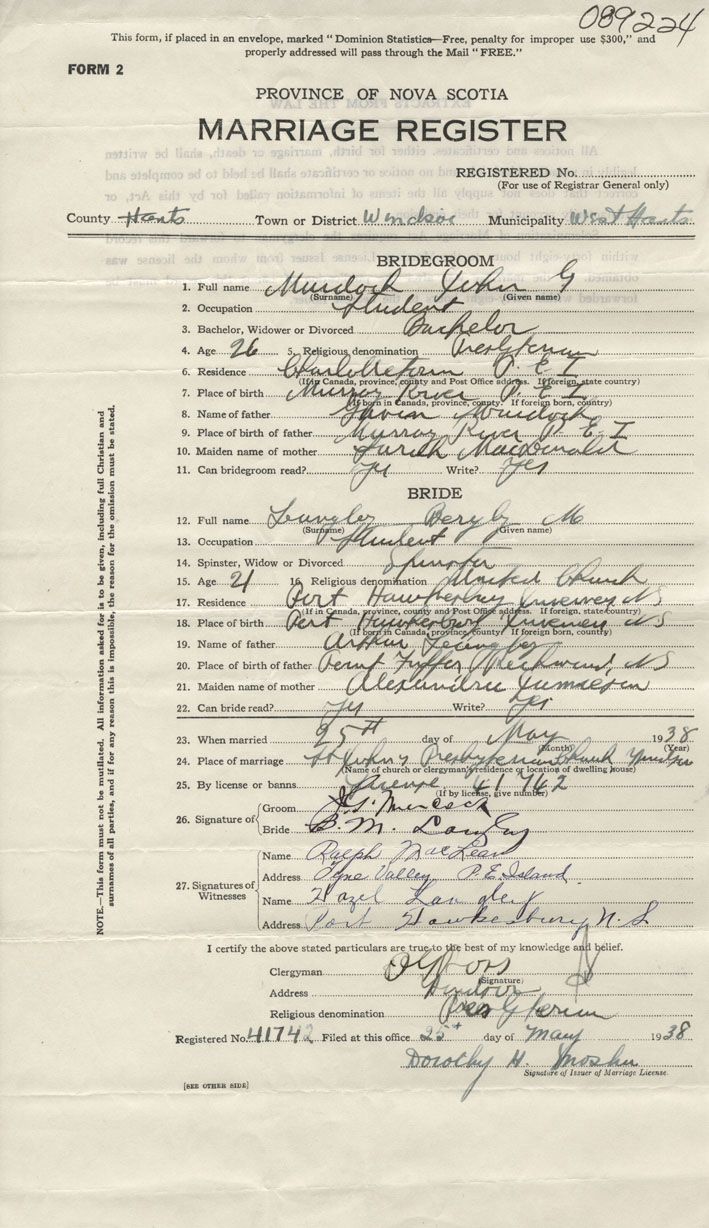 089224
This form, if placed in an envelope, marked "Dominion Statistics—Free, penalty for improper use $300," and
properly addressed will pass through the Mail "FREE."
FORM 2
PROVINCE OF NOVA SCOTIA
MARRIAGE REGISTER
REGISTERED No.
(For use of Registrar General only)
County Hants Town or District Windsor Municipality West Hants
BRIDEGROOM
1. Full name Murdoch John G
(Surname) (Given name)
2. Occupation Student
3. Bachelor, Widower or Divorced Bachelor
4. Age 26 5. Religious denomination Presbyterian
6. Residence Charlottetown P. E I
(If in Canada, province, county and Post Office address. If foreign, state country)
7. Place of birth Murray River P. E I
(If born in Canada, province, county. If foreign, country)
8. Name of father Gavin Murdoch
9. Place of birth of father Murray River P. E I
10. Maiden name of mother Sarah MacDonald
11. Can bridegroom read? Yes Write? Yes
BRIDE
12. Full name Langley Beryl M
(Surname) (Given name)
13. Occupation Student
14. Spinster, Widow or Divorced Spinster
15. Age 21 16. Religious denomination United Church
17. Residence Port Hawkesbury Inverness NS
(If in Canada, province, county and Post Office address. If foreign, state country)
18. Place of birth Port Hawkesbury Inverness NS
(If born in Canada, province, county. If foreign, country)
19. Name of father Arthur Langley
20. Place of birth of father Richmond, NS
21. Maiden name of mother Alexandria Jamieson
22. Can bride read? Yes Write? Yes
23. When married 25th day of May 1938
(Month) (Year)
24. Place of marriage St John's Presbyterian Church Windsor
(Name of church or clergyman's residence or location of dwelling house)
25. By license or banns License 41742
(If by license, give number)
26. Signature of Groom J. G. Murdock
Bride B. M. Langley
27. Signatures of Witnesses
Name Ralph MacLean
Address Tyne Valley P. E. Island.
Name Hazel Langley
Address Port Hawkesbury N. S.
I certify the above stated particulars are true to the best of my knowledge and belief.
Clergyman
(Signature)
Address Windsor
Religious denomination Presbyterian
Registered No. 41742 Filed at this office 25th day of May 1938
Dorothy H. Mosher
Signature of Issuer of Marriage License.
[SEE OTHER SIDE]
NOTE.—This form must not be mutilated. All information asked for is to be given, including full Christian and
surnames of all parties, and if for any reason this is impossible, the reason for the omission must be stated.